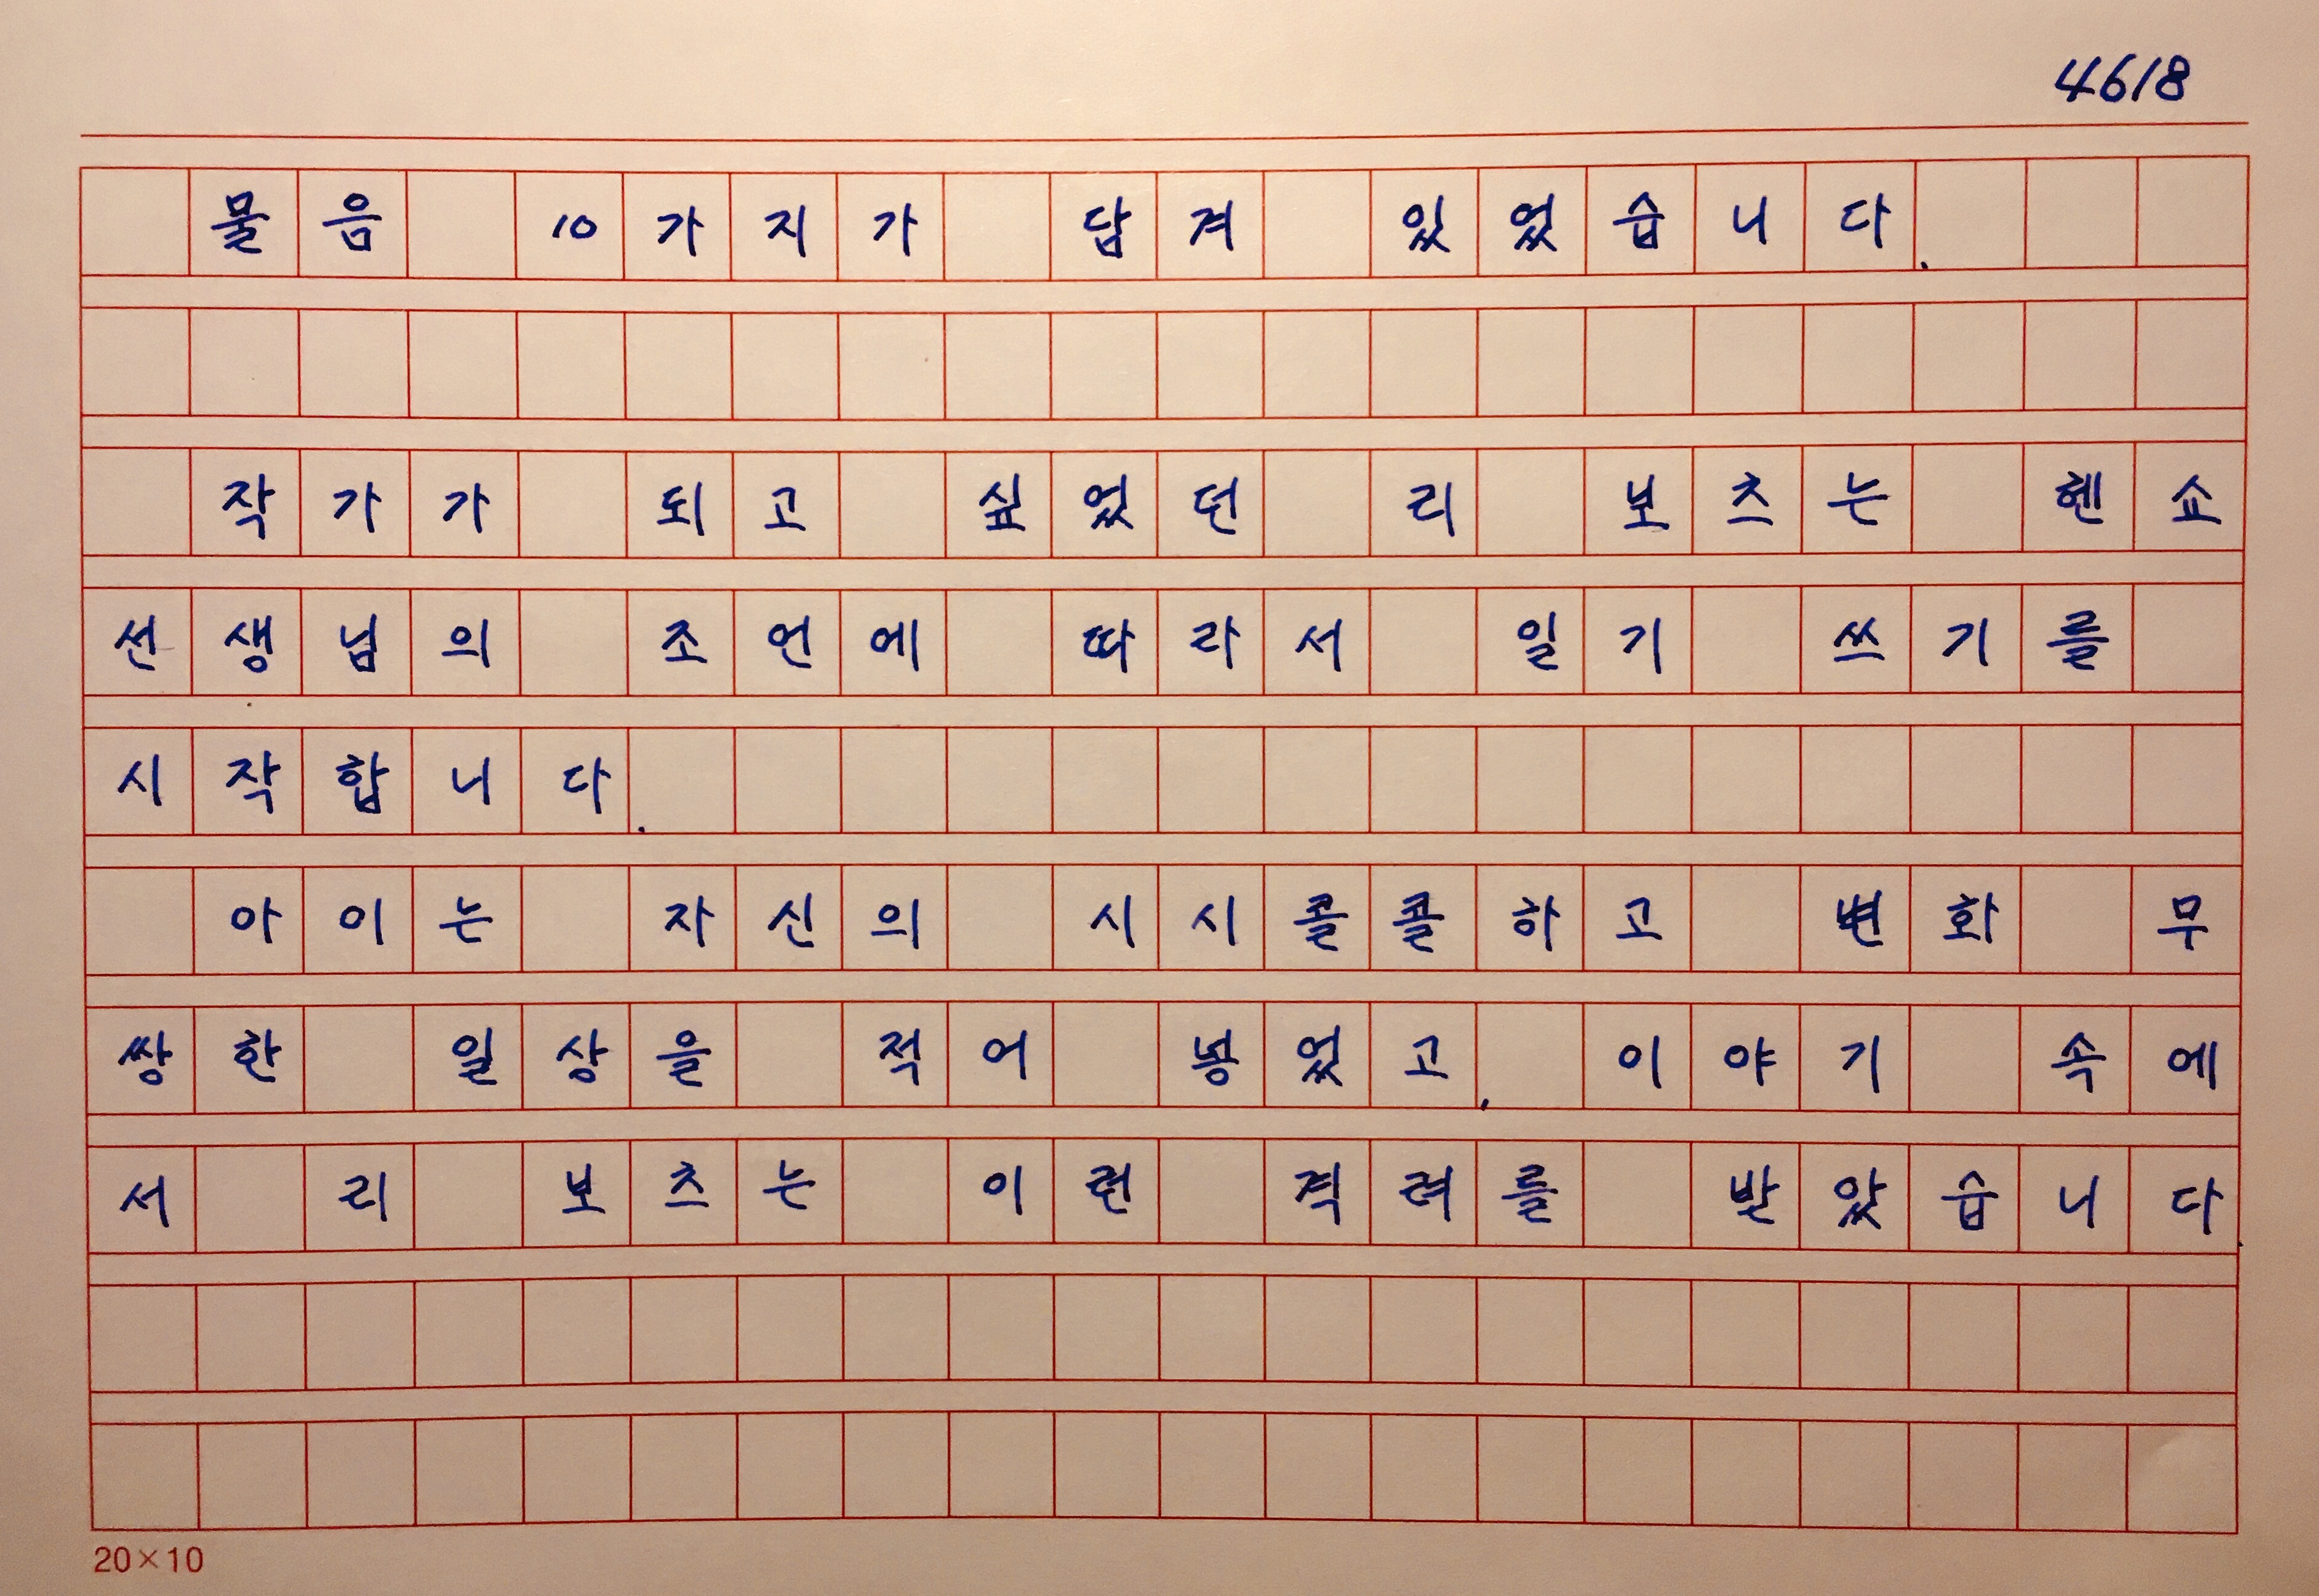 4618
물음 10가지가 담겨 있었습니다.
작가가 되고 싶었던 리 보츠는 헨쇼
선생님의 조언에 따라서 일기 쓰기를
시작합니다.
아이는 자신의 시시콜콜하고 변화 무
쌍한 일상을 적어 넣었고, 이야기 속에
서 리 보츠는 이런 격려를 받았습니다.
20×10